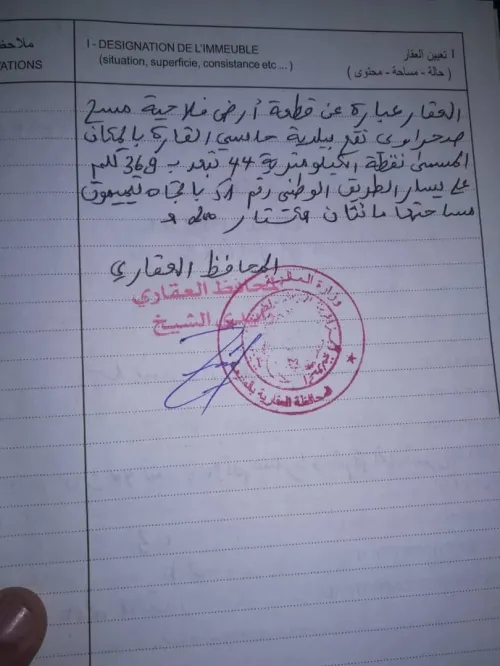 ملاحظ
ATIONS
I - DESIGNATION DE L'IMMEUBLE
(situation, superficie, consistance etc ... )
I تعيين العقار
( حالة - مساحة - محتوى )
العقار عبارة عن قطعة أرض فلاحية مسح
صحراوي تقع ببلدية حاسي القارة بالمكان
المسمى نقطة الكيلومترية 44 تبعد ب 36,9 كلم
على يسار الطريق الوطني رقم 51 باتجاه تيميمون
مساحتها مائتان هكتار 200 ه
المحافظ العقاري
المحافظ العقاري
الشيخ
وزارة المالية
المحافظة العقارية